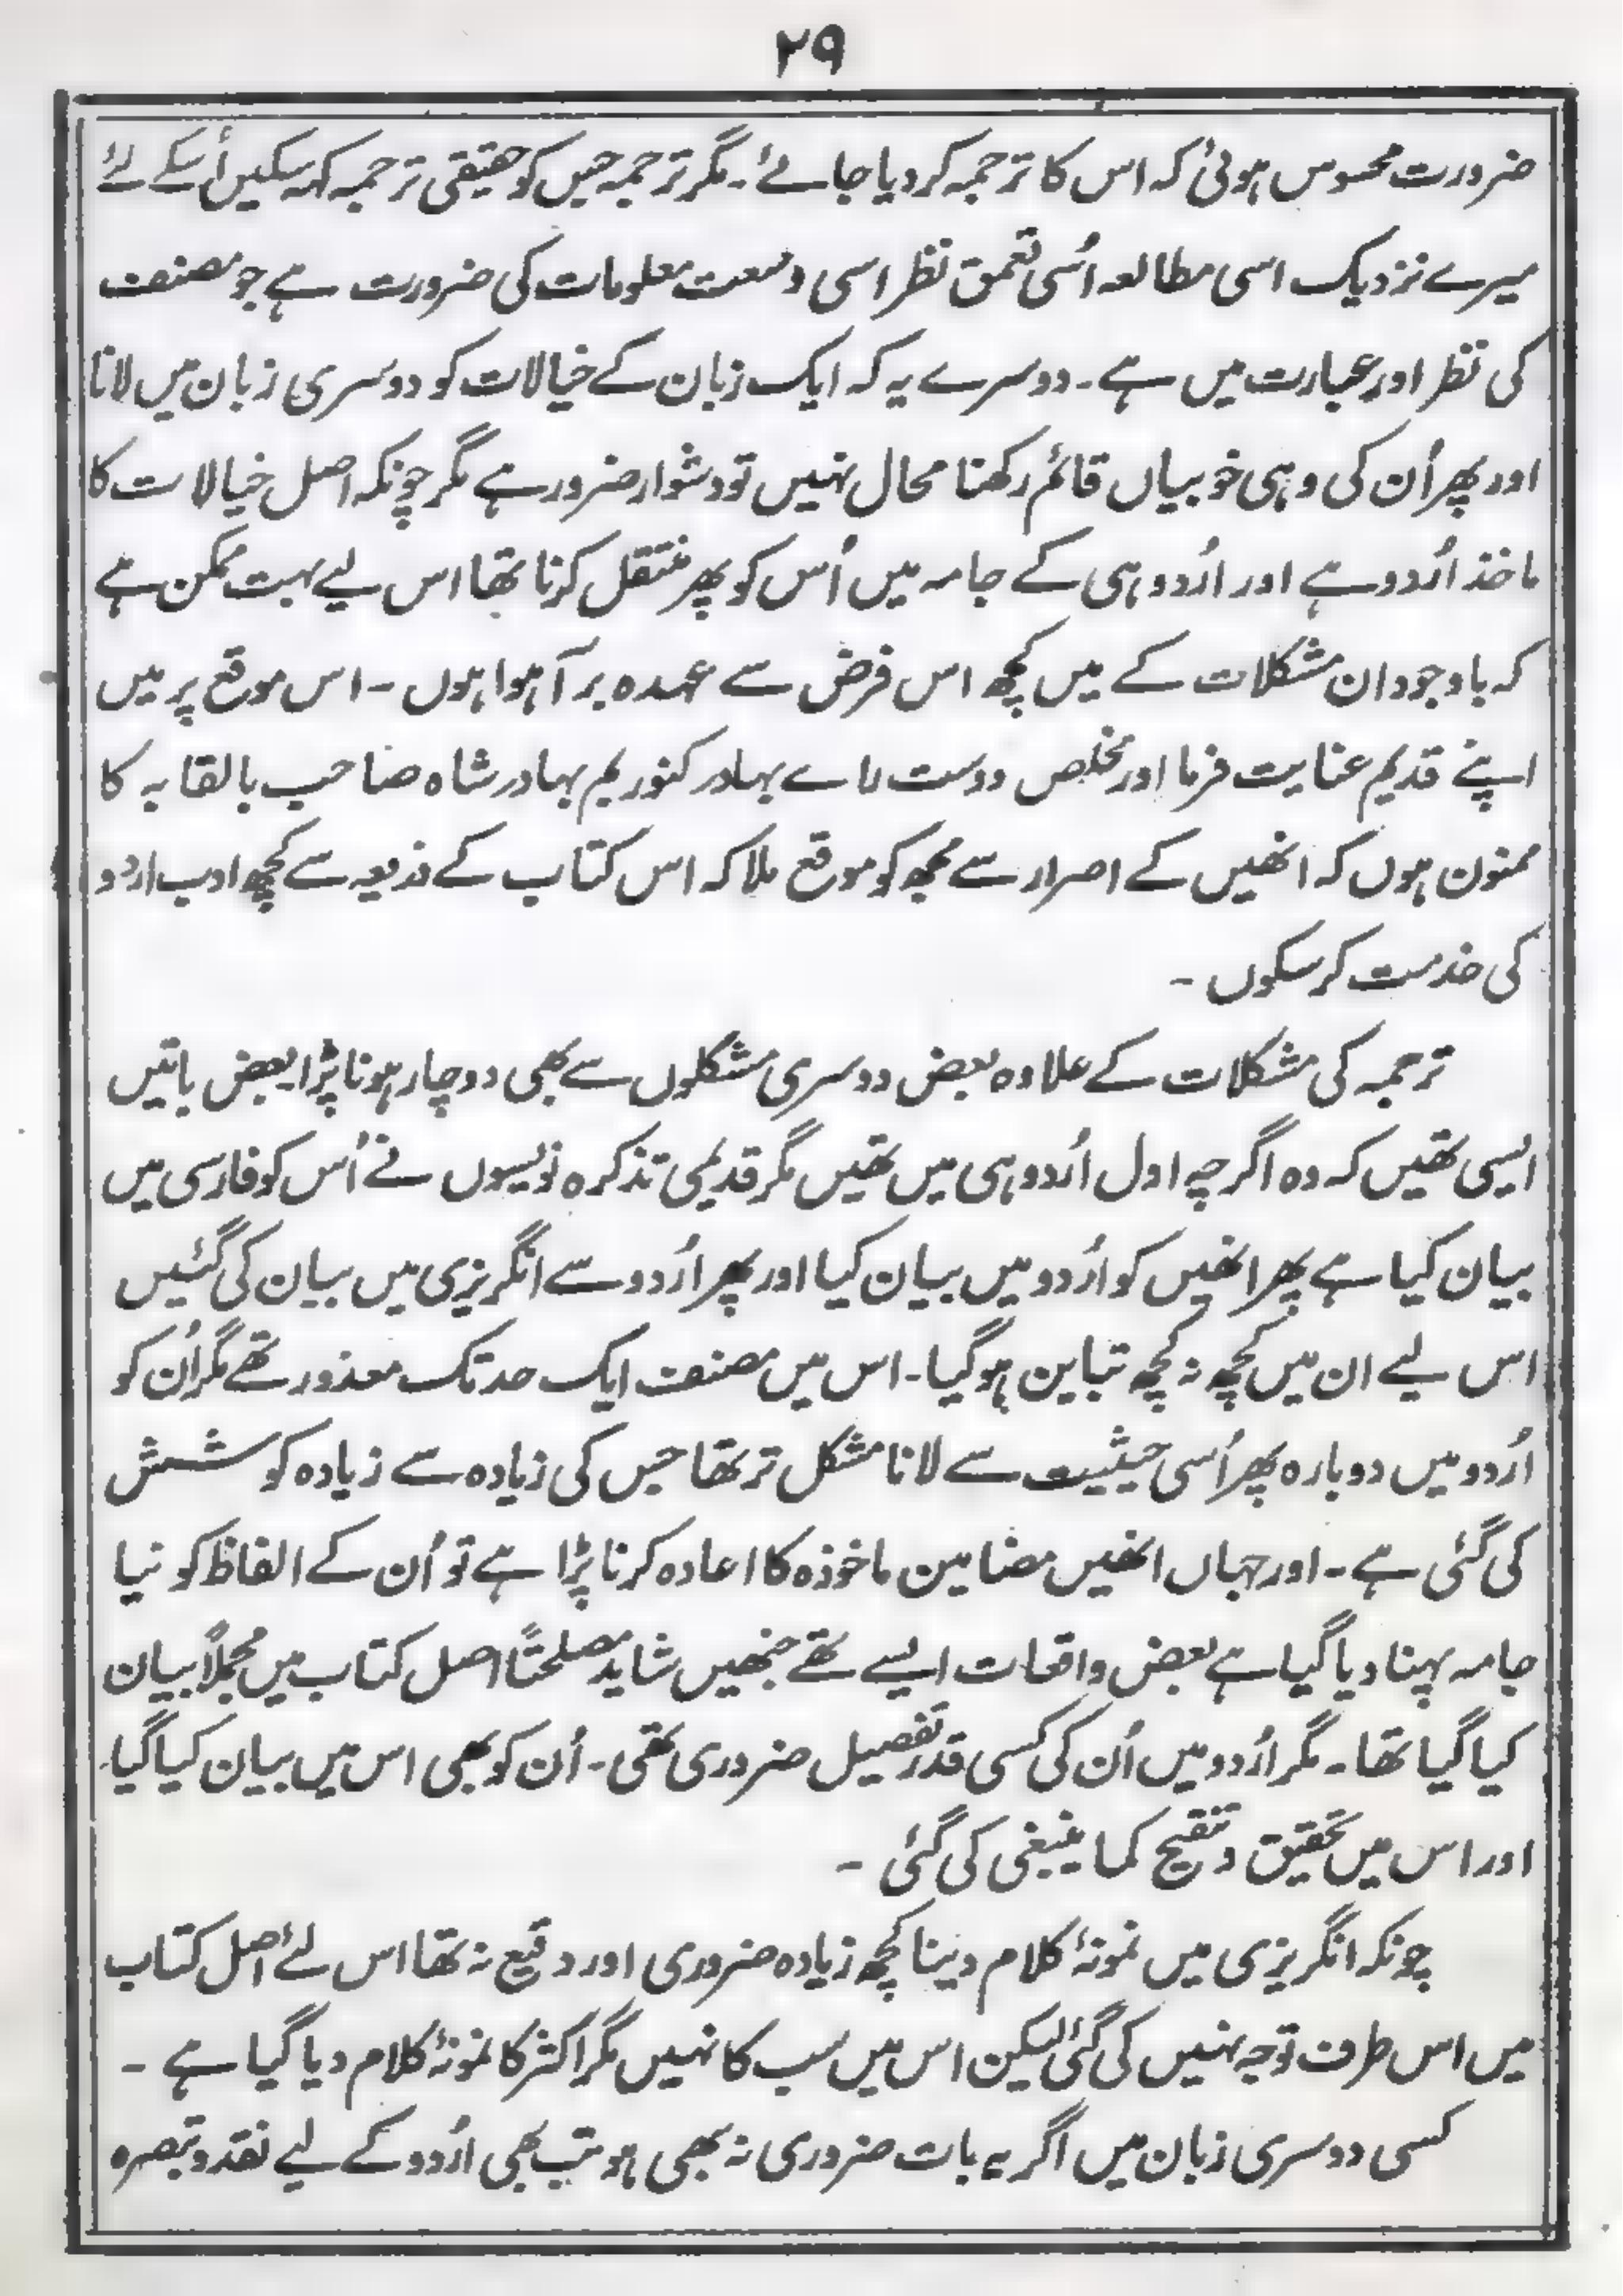 ۲۹
ضرورت محسوس ہوئی کہ اس کا ترجمہ کر دیا جائے۔ مگر ترجمہ جس کو حقیقی ترجمہ کہہ سکیں اُسکے لئے
میرے نزدیک اسی مطالعہ اُسی تعمق نظر اسی وسعت معلومات کی ضرورت ہے جو مصنف
کی نظر اور عبارت میں ہے۔ دوسرے یہ کہ ایک زبان کے خیالات کو دوسری زبان میں لانا
اور پھر اُن کی وہی خوبیاں قائم رکھنا محال نہیں تو دشوار ضرور ہے مگر چونکہ اصل خیالات کا
ماخذ اُردو ہے اور اُردو ہی کے جامہ میں اُس کو پھر منتقل کرنا تھا اس لیے بہت ممکن ہے
کہ باوجود ان مشکلات کے میں کچھ اس فرض سے عہدہ برآ ہوا ہوں ۔ اس موقع پر میں
اپنے قدیم عنایت فرما اور مخلص دوست راے بہادر کنور بم بہادر شاہ صاحب بالقابہ کا
ممنون ہوں کہ انھیں کے اصرار سے مجھ کو موقع ملا کہ اس کتاب کے ذریعہ سے کچھ ادب اردو
کی خدمت کر سکوں ۔
ترجمہ کی مشکلات کے علاوہ بعض دوسری مشکلوں سے بھی دو چار ہونا پڑا بعض باتیں
ایسی تھیں کہ وہ اگرچہ اول اُردو ہی میں تھیں مگر قدیمی تذکرہ نویسوں نے اُس کو فارسی میں
بیان کیا ہے پھر انھیں کو اُردو میں بیان کیا اور پھر اُردو سے انگریزی میں بیان کی گئیں
اس لیے ان میں کچھ نہ کچھ تباین ہو گیا۔ اس میں مصنف ایک حد تک معذور تھے مگر اُن کو
اُردو میں دوبارہ پھر اُسی حیثیت سے لانا مشکل تر تھا جس کی زیادہ سے زیادہ کوشش
کی گئی ہے ۔ اور جہاں انھیں مضامین ماخوذہ کا اعادہ کرنا پڑا ہے تو اُن کے الفاظ کو نیا
جامہ پہنا دیا گیا ہے بعض واقعات ایسے تھے جنھیں شاید مصلحتاً اصل کتاب میں مجملاً بیان
کیا گیا تھا۔ مگر اُردو میں اُن کی کسی قدر تفصیل ضروری تھی۔ اُن کو بھی اس میں بیان کیا گیا
اور اس میں تحقیق و تنقیح کما ینبغی کی گئی ۔
چونکہ انگریزی میں نمونۂ کلام دینا کچھ زیادہ ضروری اور وقیع نہ تھا اس لئے اصل کتاب
میں اس طرف توجہ نہیں کی گئی لیکن اس میں سب کا نہیں مگر اکثر کا نمونۂ کلام دیا گیا ہے ۔
کسی دوسری زبان میں اگر یہ بات ضروری نہ بھی ہو تب بھی اُردو کے لیے نقد و تبصرہ